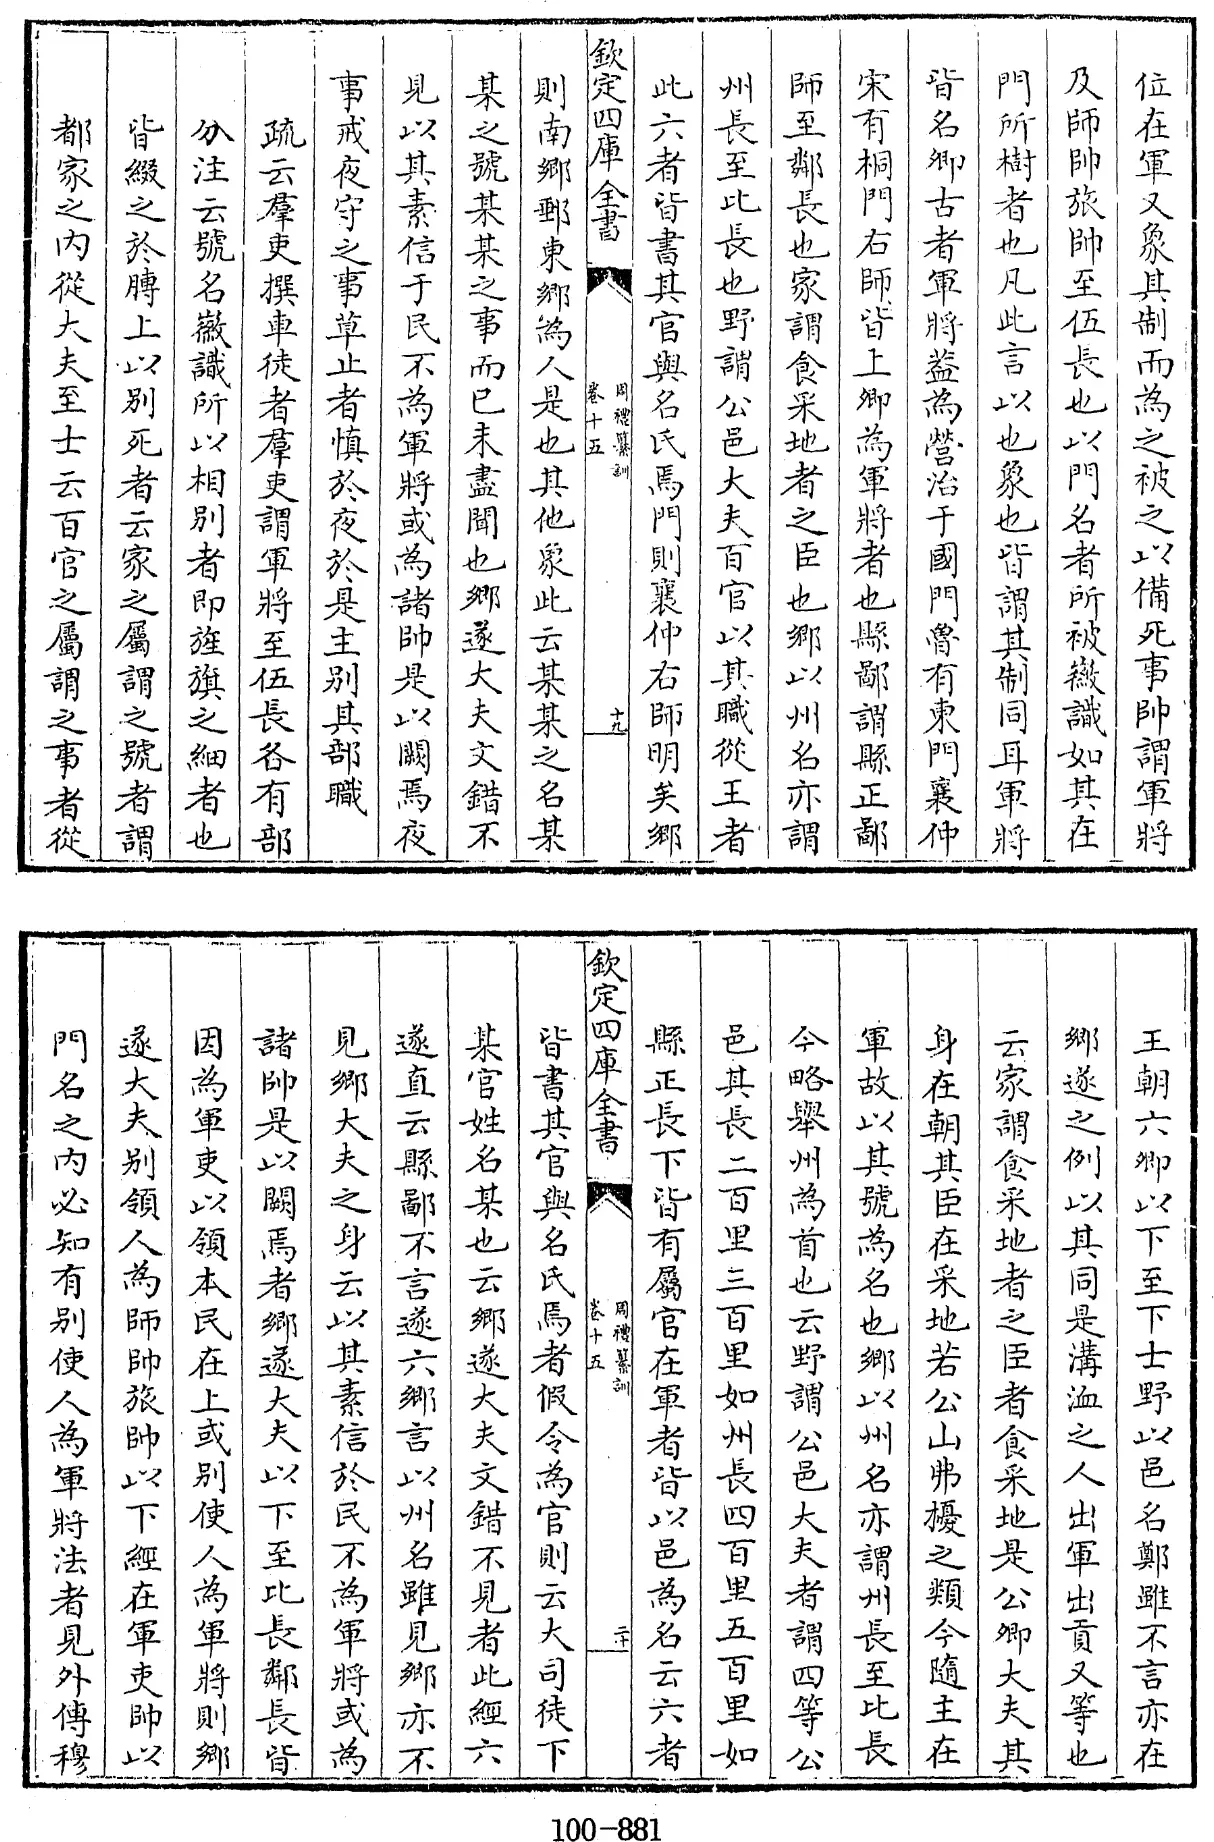 位在軍又象其制而為之被之以備死事帥謂軍將
及師帥旅帥至伍長也以門名者所被徽識如其在
門所樹者也凡此言以也象也皆謂其制同耳軍將
皆名卿古者軍將葢為營治于國門魯有東門襄仲
宋有桐門右師皆上卿為軍將者也縣鄙謂縣正鄙
師至鄰長也家謂食采地者之臣也鄉以州名亦謂
州長至比長也野謂公邑大夫百官以其職從王者
此六者皆書其官與名氏焉門則襄仲右師明矣鄉
欽定四庫全書
周禮纂訓
卷十五
十九
則南鄉甀東鄉為人是也其他象此云某某之名某
某之號某某之事而已未盡聞也鄉遂大夫文錯不
見以其素信于民不為軍將或為諸帥是以闕焉夜
事戒夜守之事草止者慎於夜於是主別其部職
疏云羣吏撰車徒者羣吏謂軍將至伍長各有部
分注云號名徽識所以相別者即旌旗之細者也
皆綴之於膊上以別死者云家之屬謂之號者謂
都家之內從大夫至士云百官之屬謂之事者從
王朝六卿以下至下士野以邑名鄭雖不言亦在
鄉遂之例以其同是溝洫之人出軍出貢又等也
云家謂食采地者之臣者食采地是公卿大夫其
身在朝其臣在采地若公山弗擾之類今隨主在
軍故以其號為名也鄉以州名亦謂州長至比長
今略舉州為首也云野謂公邑大夫者謂四等公
邑其長二百里三百里如州長四百里五百里如
縣正長下皆有屬官在軍者皆以邑為名云六者
欽定四庫全書
周禮纂訓
卷十五
二十
皆書其官與名氏焉者假令為官則云大司徒下
某官姓名某也云鄉遂大夫文錯不見者此經六
遂直云縣鄙不言遂六鄉言以州名雖見鄉亦不
見鄉大夫之身云以其素信於民不為軍將或為
諸帥是以闕焉者鄉遂大夫以下至比長鄰長皆
因為軍吏以領本民在上或別使人為軍將則鄉
遂大夫別領人為師帥旅帥以下經在軍吏帥以
門名之內必知有別使人為軍將法者見外傳穆
100-881